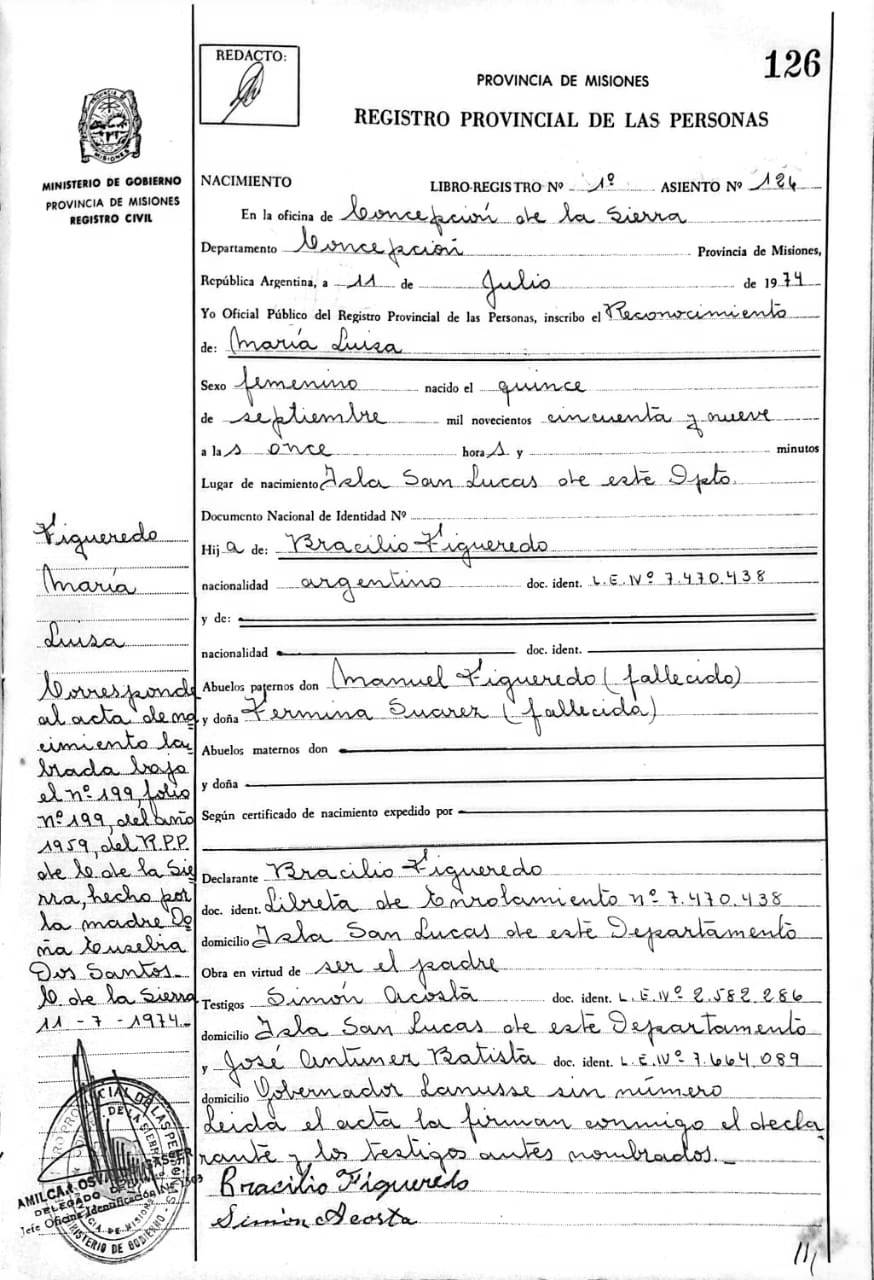 REDACTO:
126
PROVINCIA DE MISIONES
REGISTRO PROVINCIAL DE LAS PERSONAS
MINISTERIO DE GOBIERNO
PROVINCIA DE MISIONES
REGISTRO CIVIL
NACIMIENTO LIBRO-REGISTRO Nº 1º ASIENTO Nº 126
En la oficina de Concepción de la Sierra
Departamento Concepción Provincia de Misiones,
República Argentina, a 11 de Julio de 1974
Yo Oficial Público del Registro Provincial de las Personas, inscribo el Reconocimiento
de: María Luisa
Sexo femenino nacido el quince
de septiembre mil novecientos cincuenta y nueve
a las once horas y minutos
Lugar de nacimiento Isla San Lucas de este Dpto.
Documento Nacional de Identidad Nº
Hija de: Bracilio Figueredo
nacionalidad argentino doc. ident. L.E.Nº 7.470.438
y de:
nacionalidad doc. ident.
Abuelos paternos don Manuel Figueredo (fallecido)
y doña Fermina Suarez (fallecida)
Abuelos maternos don
y doña
Según certificado de nacimiento expedido por
Declarante Bracilio Figueredo
doc. ident. Libreta de Enrolamiento nº 7.470.438
domicilio Isla San Lucas de este Departamento
Obra en virtud de ser el padre
Testigos Simón Acosta doc. ident. L.E.Nº 2.582.286
domicilio Isla San Lucas de este Departamento
y José Antunez Batista doc. ident. L.E.Nº 7.664.089
domicilio Gobernador Lanusse sin número
Leida el acta la firman conmigo el decla
rante y los testigos antes nombrados._
Bracilio Figueredo
Simón Acosta
///
Figueredo
María
Luisa
Corresponde
al acta de na
cimiento la
brada bajo
el nº 199, folio
nº 199, del año
1959, del R.P.P.
de C. de la Sie
rra, hecho por
la madre Do
ña Eusebia
Dos Santos._
C. de la Sierra
11-7-1974._
AMILCAR
DELEGADO
Jefe Oficina Identificación
MINISTERIO DE GOBIERNO